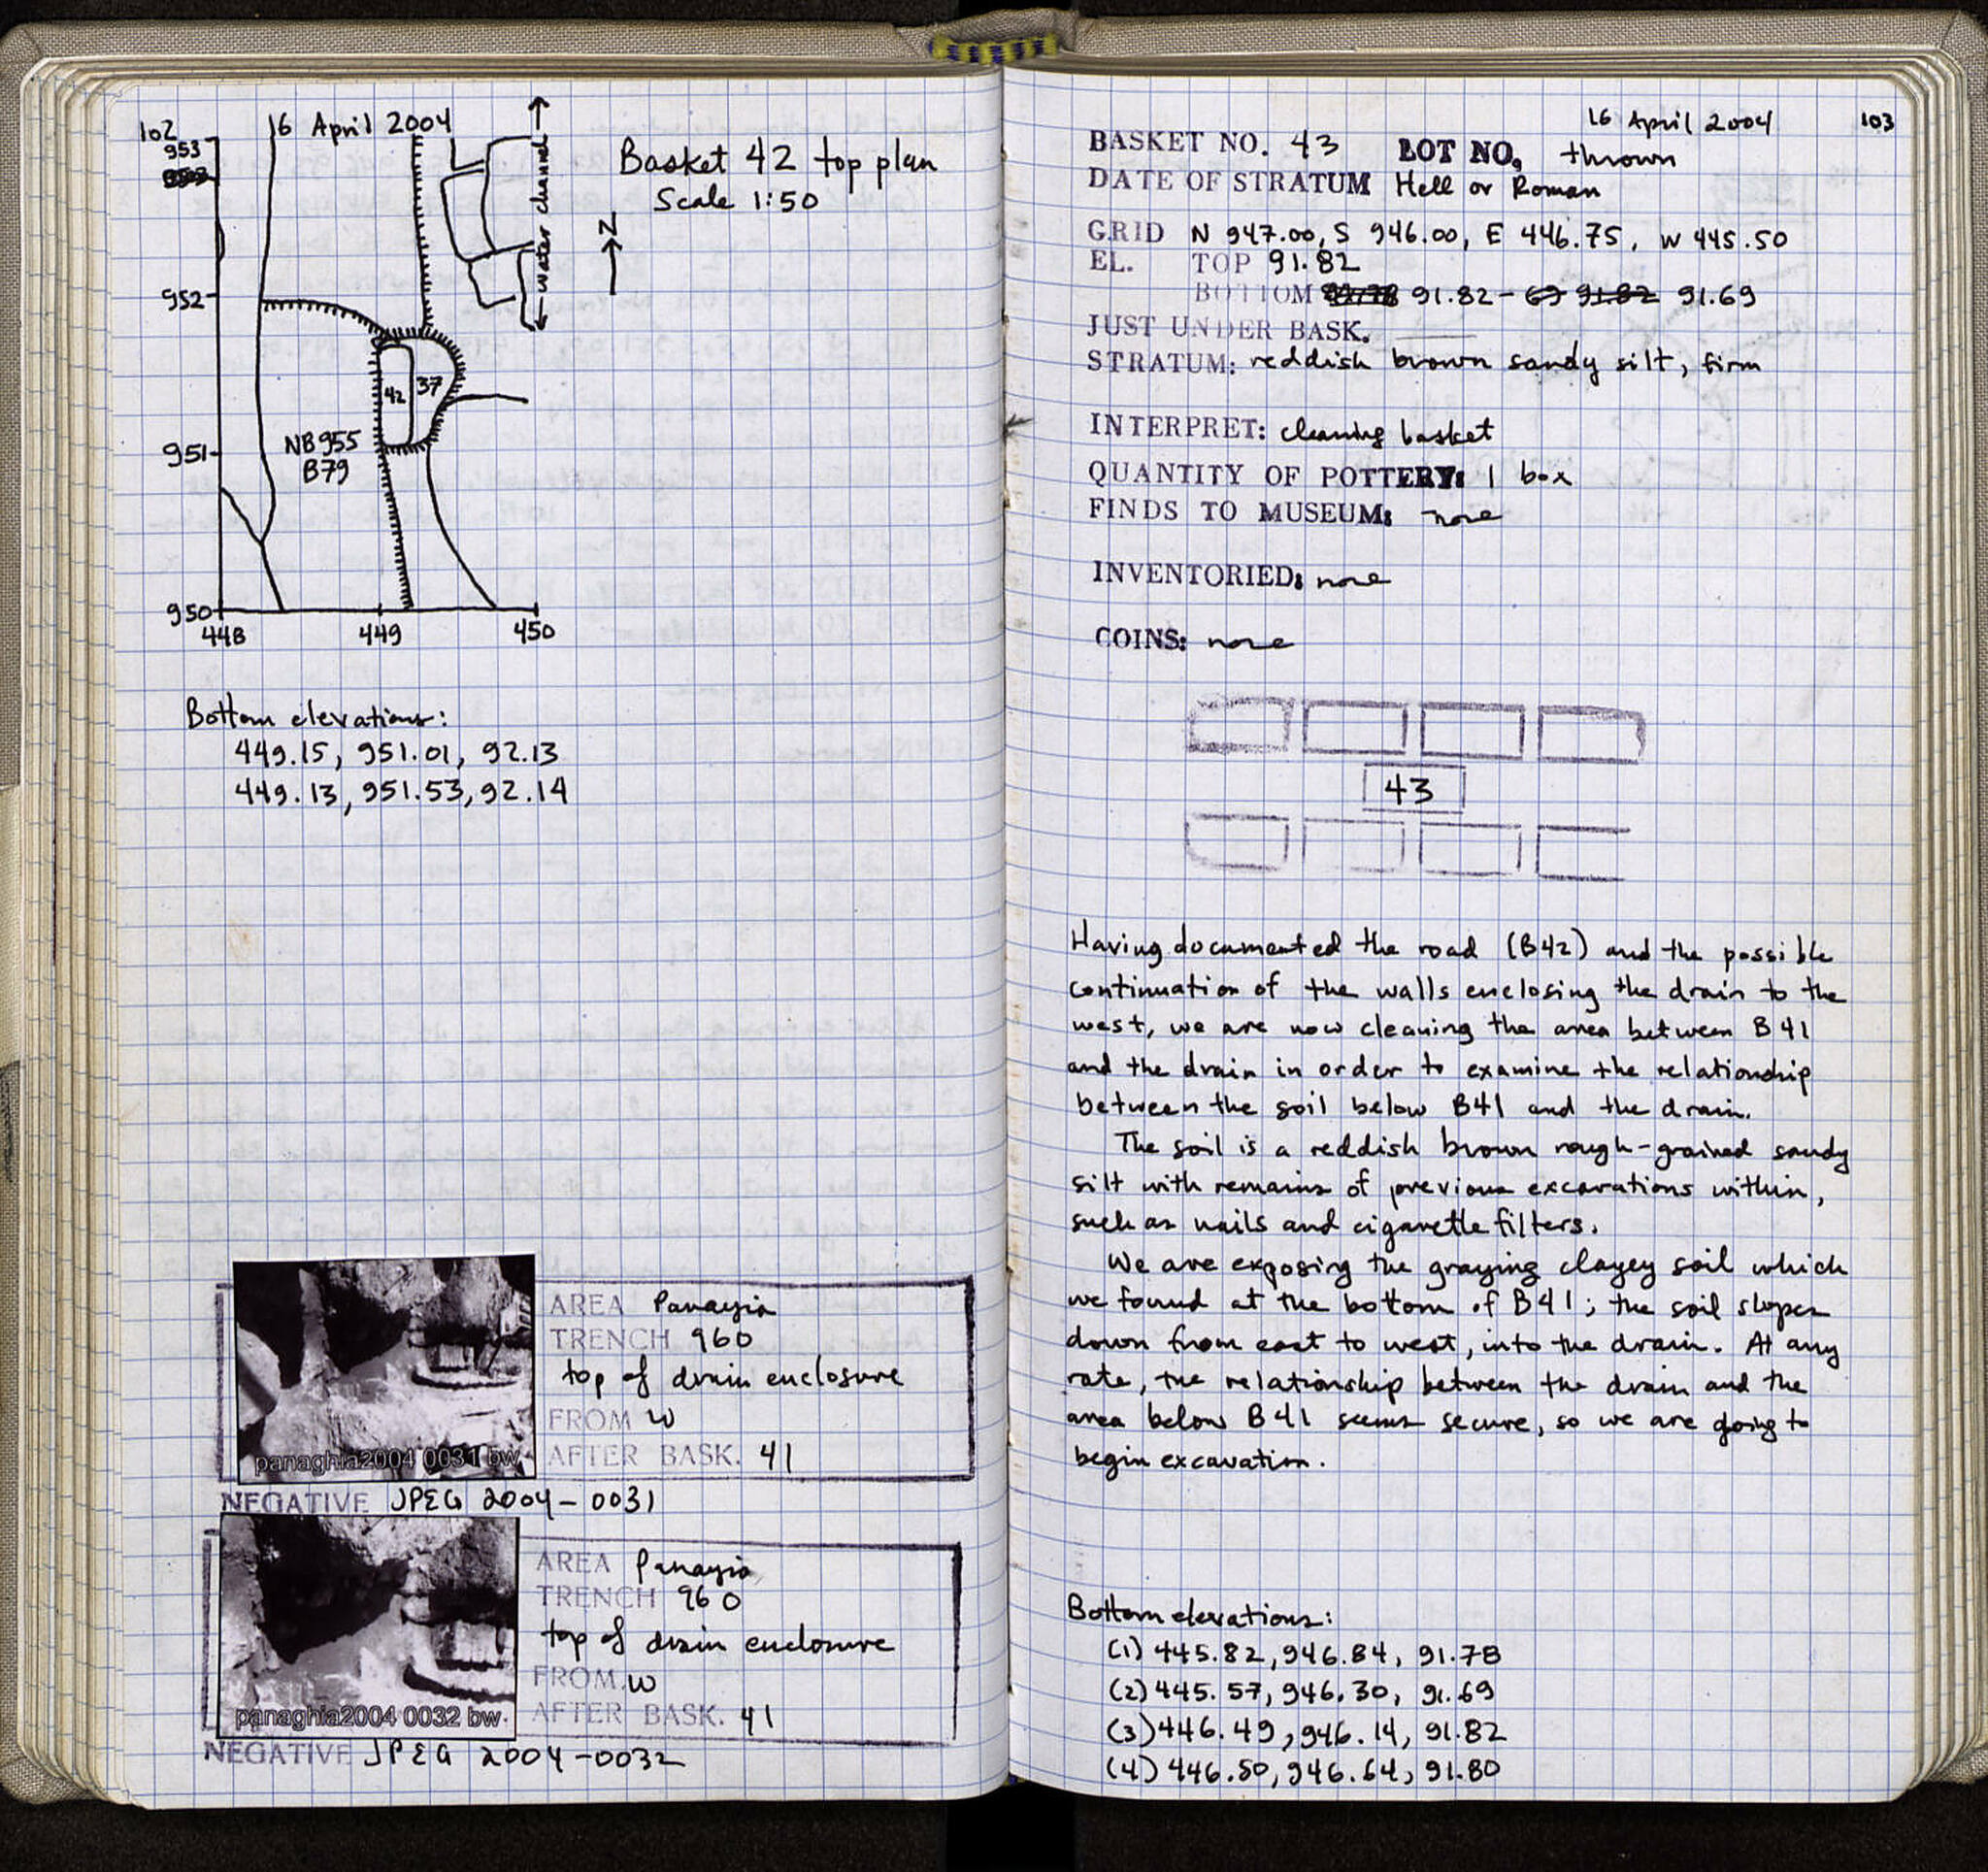 102
16 April 2004
953
952
951
950
448
449
450
42
37
NB955
B79
← water channel →
N
Basket 42 top plan
Scale 1:50
Bottom elevations:
449.15, 951.01, 92.13
449.13, 951.53, 92.14
AREA Panayia
TRENCH 960
top of drain enclosure
FROM W
AFTER BASK. 41
panaghia2004 0031 bw
NEGATIVE JPEG 2004-0031
AREA Panayia
TRENCH 960
top of drain enclosure
FROM W
AFTER BASK. 41
panaghia2004 0032 bw
NEGATIVE JPEG 2004-0032
16 April 2004 103
BASKET NO. 43 LOT NO. thrown
DATE OF STRATUM Hell or Roman
GRID N 947.00, S 946.00, E 446.75, W 445.50
EL. TOP 91.82
BOTTOM 91.82 - 69 91.82 91.69
JUST UNDER BASK.
STRATUM: reddish brown sandy silt, firm
INTERPRET: cleaning basket
QUANTITY OF POTTERY: 1 box
FINDS TO MUSEUM: none
INVENTORIED: none
COINS: none
43
Having documented the road (B42) and the possible
continuation of the walls enclosing the drain to the
west, we are now cleaning the area between B41
and the drain in order to examine the relationship
between the soil below B41 and the drain.
The soil is a reddish brown rough-grained sandy
silt with remains of previous excavations within,
such as nails and cigarette filters.
We are exposing the graying clayey soil which
we found at the bottom of B41; the soil slopes
down from east to west, into the drain. At any
rate, the relationship between the drain and the
area below B41 seems secure, so we are going to
begin excavation.
Bottom elevations:
(1) 445.82, 946.84, 91.78
(2) 445.57, 946.30, 91.69
(3) 446.49, 946.14, 91.82
(4) 446.50, 946.64, 91.80